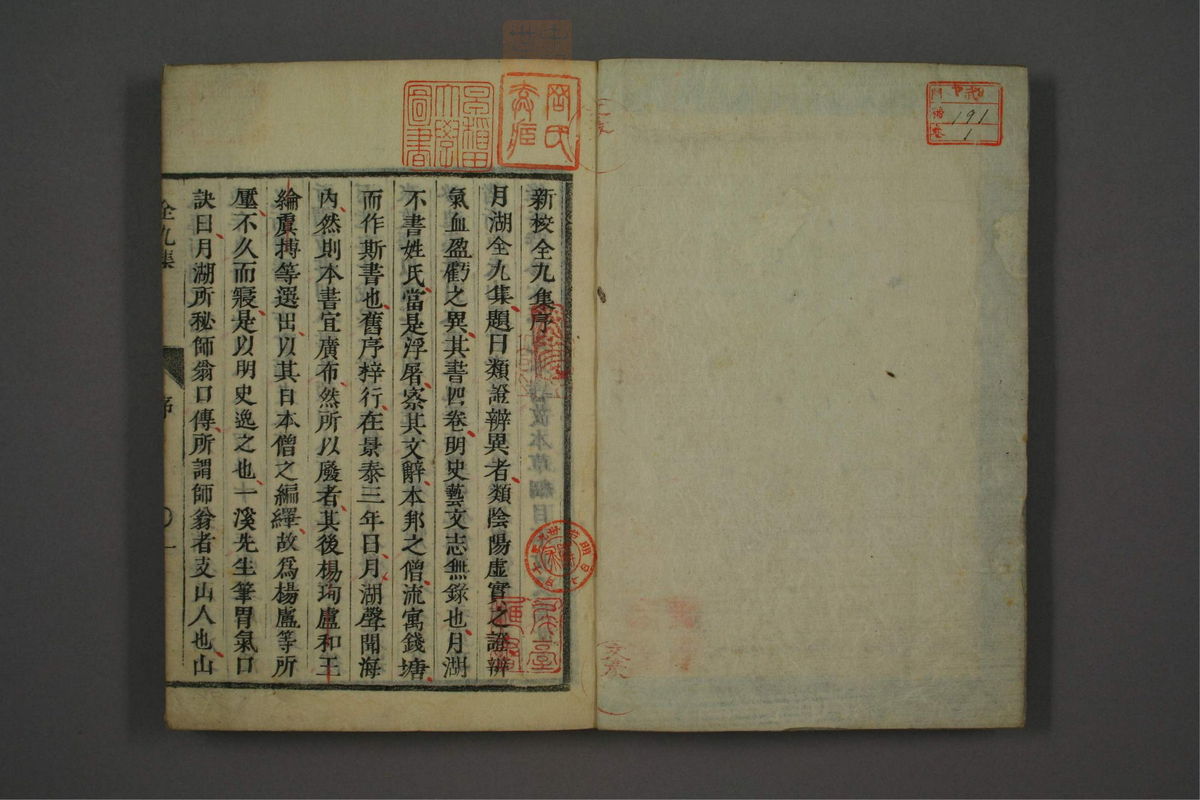 191
1
新校全九集序
月湖全九集題曰類證辨異者類陰陽虛實之證辨
氣血盈虧之異其書四卷明史藝文志無錄也月湖
不書姓氏當是浮屠察其文辭本邦之僧流寓錢塘
而作斯書也舊序梓行在景泰三年曰月湖聲聞海
內然則本書宜廣布然所以廢者其後楊珣盧和王
綸虞摶等選出以其日本僧之編繹故爲楊盧等所
壓不久而寢是以明史逸之也一溪先生筆胃氣口
訣曰月湖所秘師翁口傳所謂師翁者支山人也山
全九集
序
一
早稻田大學圖書